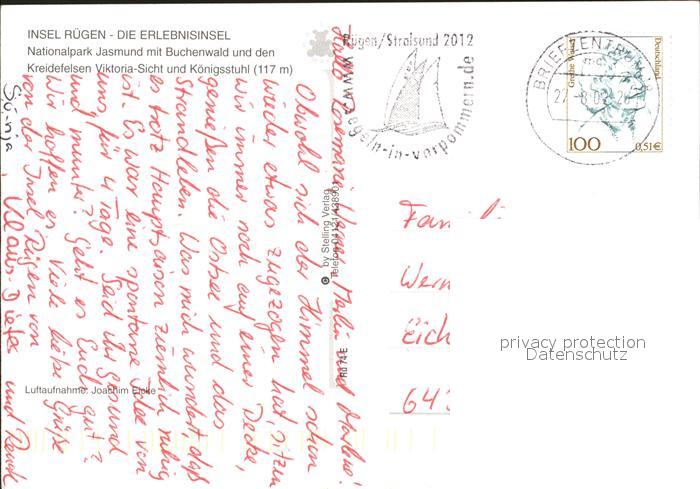 INSEL RÜGEN - DIE ERLEBNISINSEL
Nationalpark Jasmund mit Buchenwald und den
Kreidefelsen Viktoria-Sicht und Königsstuhl (117 m)
Rügen/Stralsund 2012
www.segeln-in-vorpommern.de
BRIEFZENTRUM
Deutschland
100
0,51€
Hallo Werner, Merlin und Marlene!
Obwohl sich der Himmel schon
wieder etwas zugezogen hat, sitzen
wir immer noch auf einer Decke,
genießen die Ostsee und das
Strandleben. Was mich wundert daß
es trotz Hauptsaison ziemlich ruhig
ist. Es war eine spontane Idee von
uns, für 4 Tage. Seid Ihr gesund
und munter? Geht es Euch gut?
Wir hoffen es. Viele liebe Grüße
von der Insel Rügen von
Klaus-Dieter und
by Stelling Verlag
RÜ 74 E
Fam
Wern
Eich
64
privacy protection
Datenschutz
Luftaufnahme: Joachim Eicke